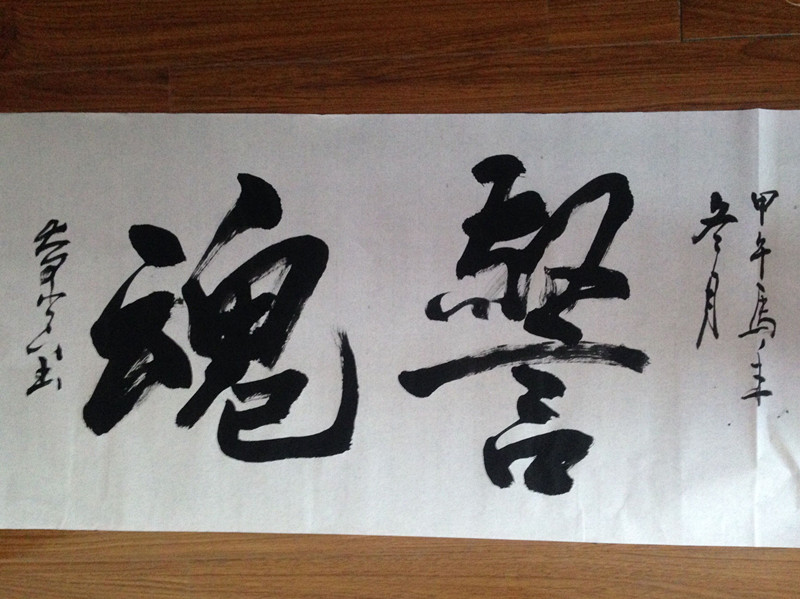 甲午馬年
冬月
警魂